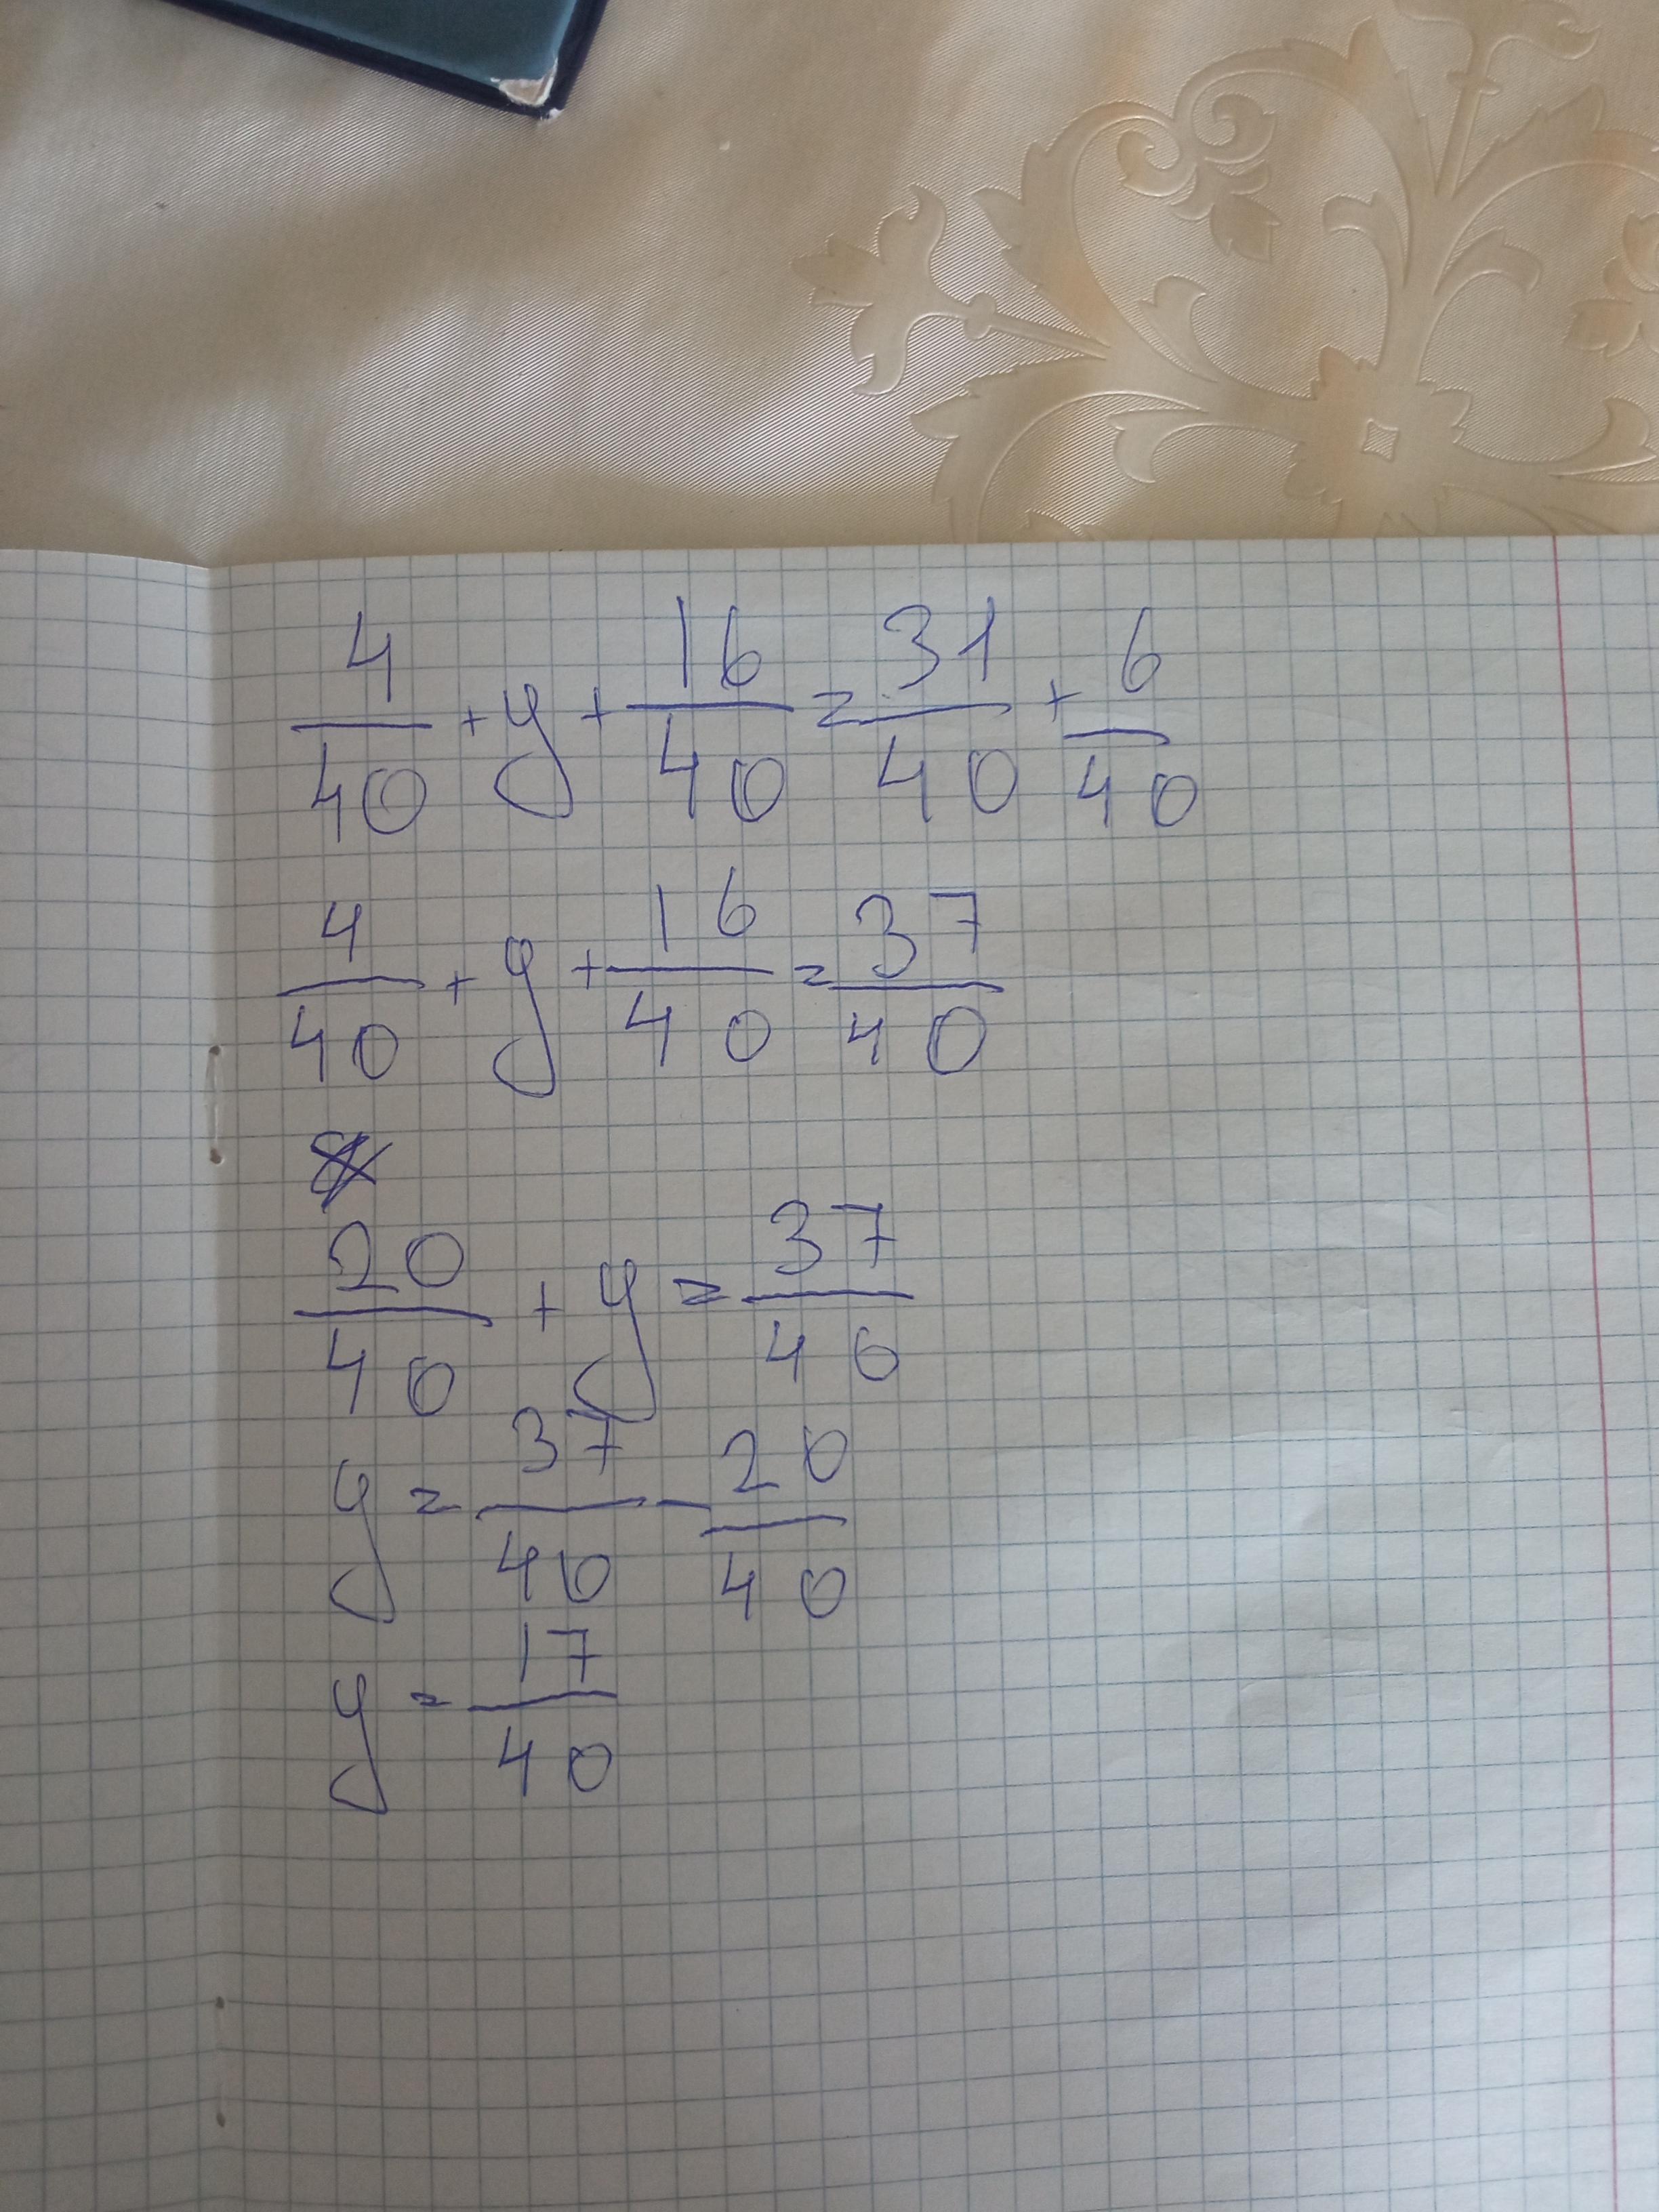 4/40 + y + 16/40 = 31/40 + 6/40
4/40 + y + 16/40 = 37/40
20/40 + y = 37/40
y = 37/40 - 20/40
y = 17/40